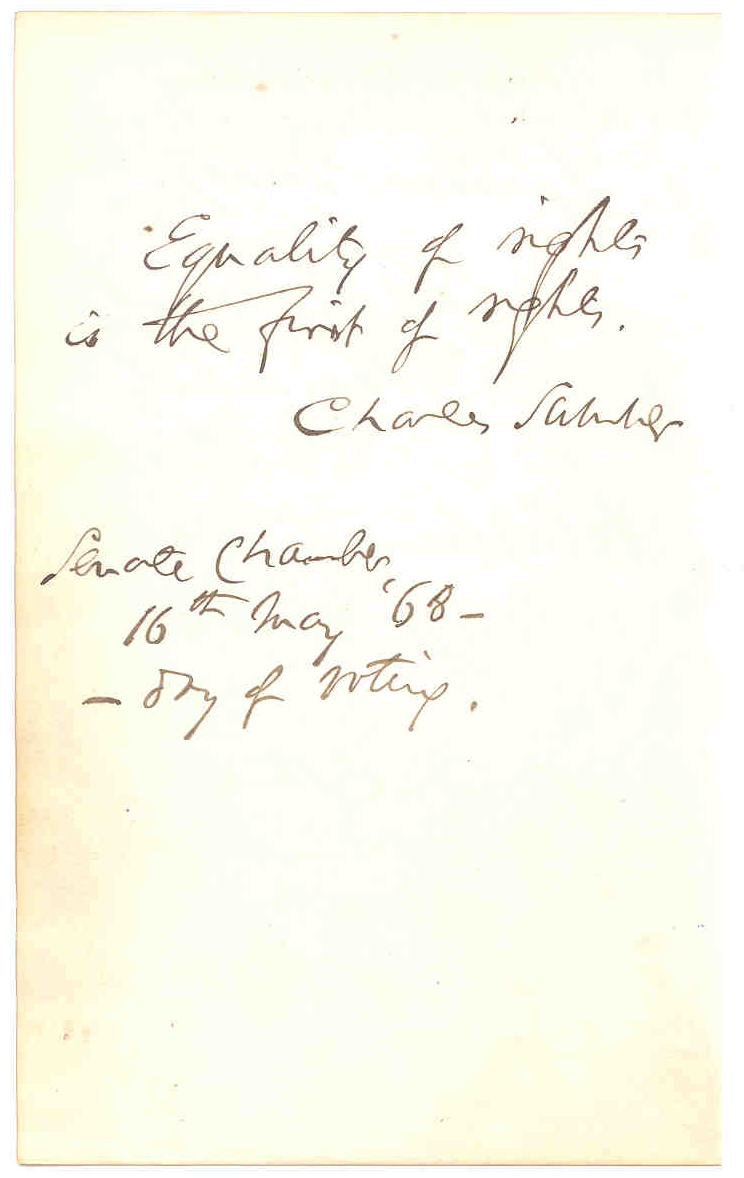 Equality of rights
is the first of rights.
Charles Sumner
Senate Chamber
16th May '68 –
– day of voting.